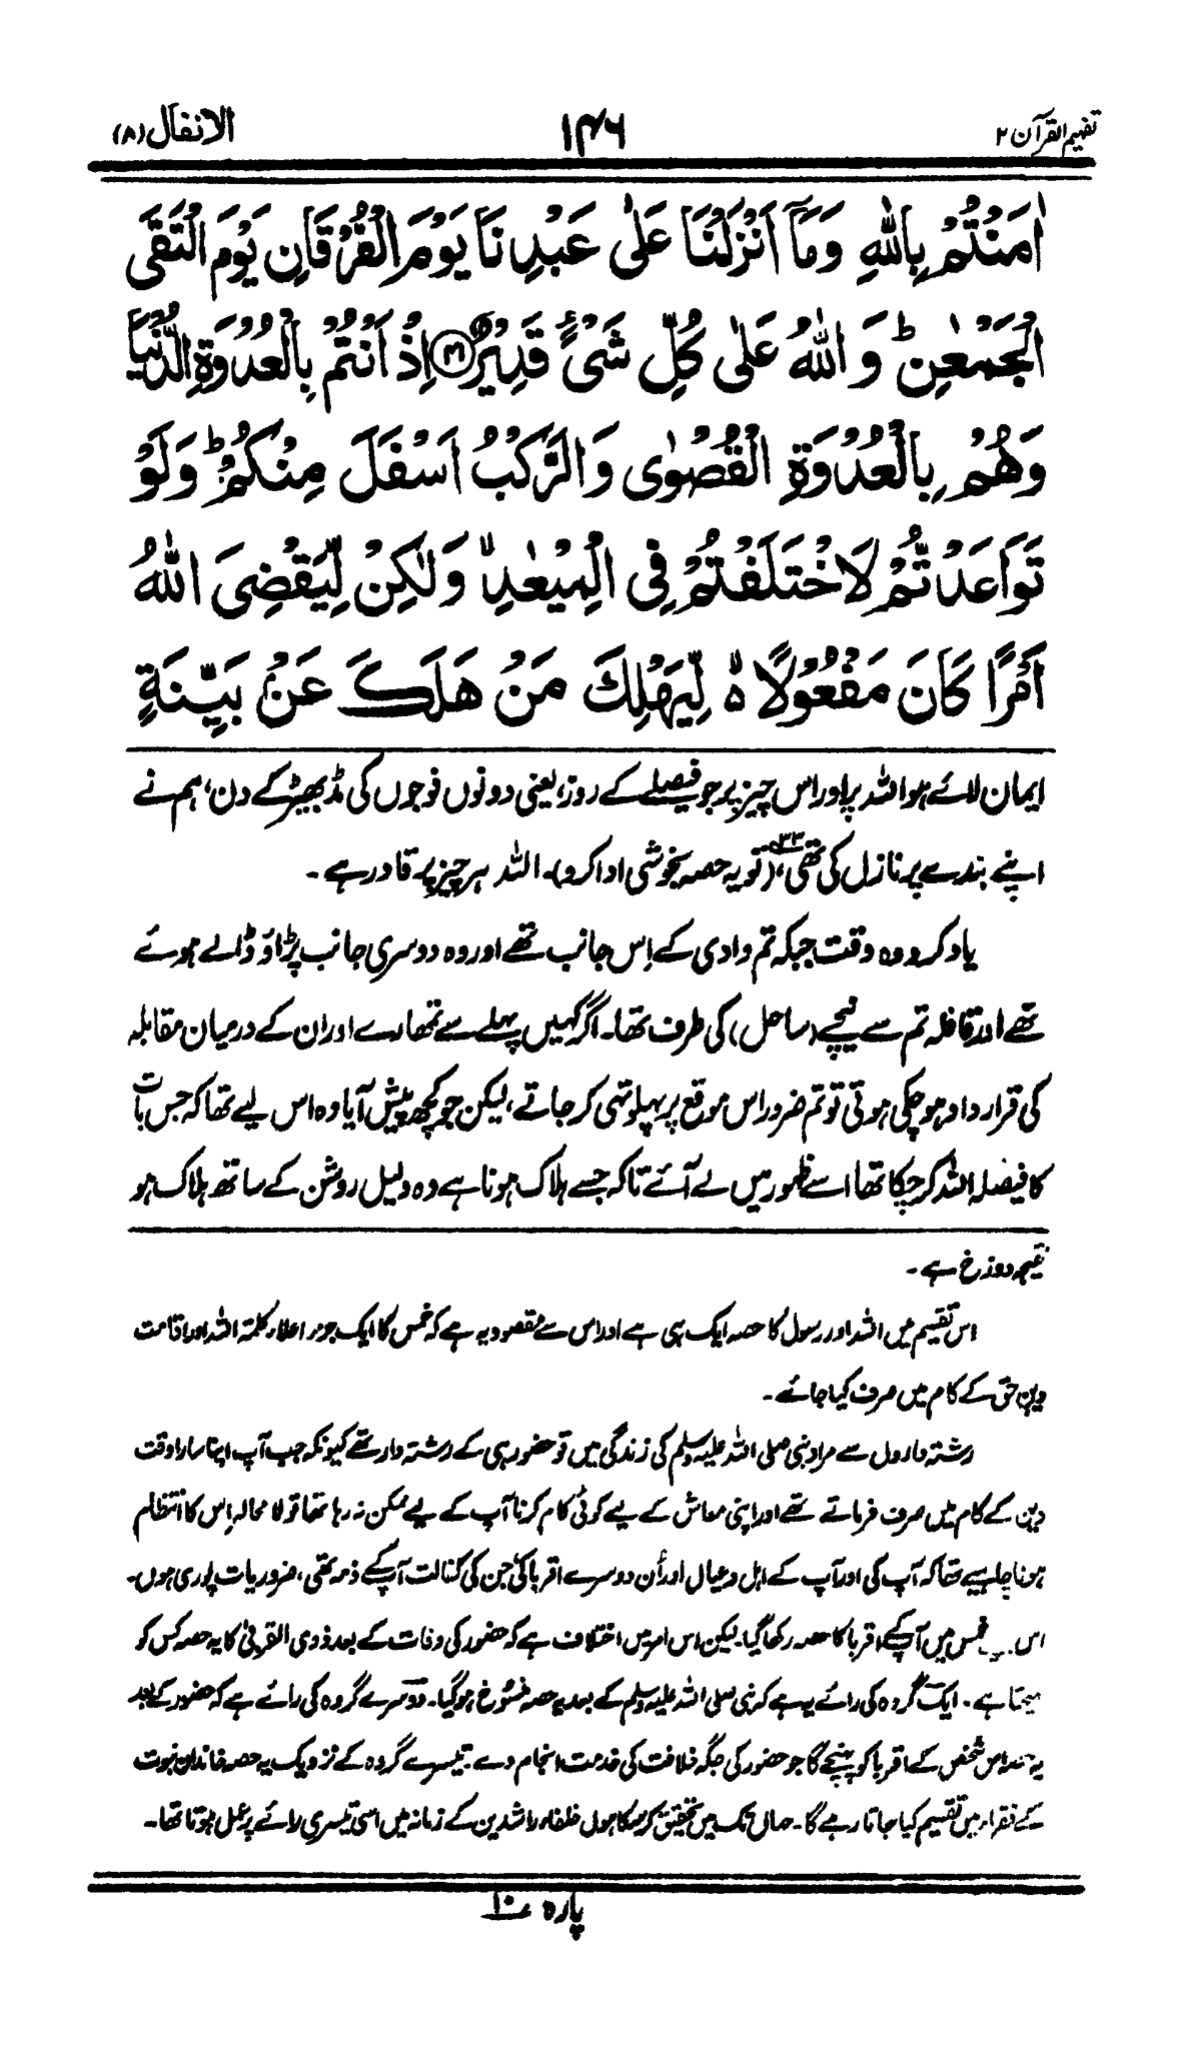 تفہیم القرآن ۲
۱۴۶
الانفال (۸)
اٰمَنْتُمْ بِاللّٰهِ وَمَآ اَنْزَلْنَا عَلٰى عَبْدِنَا يَوْمَ الْفُرْقَانِ يَوْمَ الْتَقَى
الْجَمْعٰنِ ؕ وَ اللّٰهُ عَلٰى كُلِّ شَىْءٍ قَدِيْرٌ ۴۱ اِذْ اَنْتُمْ بِالْعُدْوَةِ الدُّنْيَا
وَهُمْ بِالْعُدْوَةِ الْقُصْوٰى وَالرَّكْبُ اَسْفَلَ مِنْكُمْ ؕ وَلَوْ
تَوَاعَدْتُّمْ لَاخْتَلَفْتُمْ فِى الْمِيْعٰدِ ۙ وَلٰكِنْ لِّيَقْضِىَ اللّٰهُ
اَمْرًا كَانَ مَفْعُوْلًا ۙ۬ لِّيَهْلِكَ مَنْ هَلَكَ عَنْ بَيِّنَةٍ
ایمان لائے ہو اللہ پر اور اس چیز پر جو فیصلے کے روز، یعنی دونوں فوجوں کی مڈبھیڑ کے دن، ہم نے
اپنے بندے پر نازل کی تھی،۳۳ (تو یہ حصہ بخوشی ادا کرو)۔ اللہ ہر چیز پر قادر ہے۔
یاد کرو وہ وقت جبکہ تم وادی کے اِس جانب تھے اور وہ دوسری جانب پڑاؤ ڈالے ہوئے
تھے اور قافلہ تم سے نیچے (ساحل) کی طرف تھا۔ اگر کہیں پہلے سے تمھارے اور ان کے درمیان مقابلہ
کی قرارداد ہو چکی ہوتی تو تم ضرور اس موقع پر پہلو تہی کر جاتے، لیکن جو کچھ پیش آیا وہ اس لیے تھا کہ جس بات
کا فیصلہ اللہ کر چکا تھا اسے ظہور میں لے آئے تاکہ جسے ہلاک ہونا ہے وہ دلیل روشن کے ساتھ ہلاک ہو
نتیجہ دوزخ ہے۔
اس تقسیم میں اللہ اور رسول کا حصہ ایک ہی ہے اور اس سے مقصود یہ ہے کہ خمس کا ایک جزء اعلاء کلمۃ اللہ اور اقامت
دین حق کے کام میں صرف کیا جائے۔
رشتہ داروں سے مراد نبی صلی اللہ علیہ وسلم کی زندگی میں تو حضور ہی کے رشتہ دار تھے کیونکہ جب آپ اپنا سارا وقت
دین کے کام میں صرف فرماتے تھے اور اپنی معاش کے لیے کوئی کام کرنا آپ کے لیے ممکن نہ رہا تھا تو لامحالہ اِس کا انتظام
ہونا چاہیے تھا کہ آپ کی اور آپ کے اہل و عیال اور اُن دوسرے اقربا کی جن کی کفالت آپ کے ذمہ تھی، ضروریات پوری ہوں۔
اس خمس میں آپ کے اقربا کا حصہ رکھا گیا۔ لیکن اس امر میں اختلاف ہے کہ حضور کی وفات کے بعد ذوی القربیٰ کا یہ حصہ کس کو
پہنچتا ہے۔ ایک گروہ کی رائے یہ ہے کہ نبی صلی اللہ علیہ وسلم کے بعد یہ حصہ منسوخ ہو گیا۔ دوسرے گروہ کی رائے ہے کہ حضور کے بعد
یہ حصہ اس شخص کے اقربا کو پہنچے گا جو حضور کی جگہ خلافت کی خدمت انجام دے۔ تیسرے گروہ کے نزدیک یہ حصہ خاندان نبوت
کے فقراء میں تقسیم کیا جاتا رہے گا۔ جہاں تک میں تحقیق کر سکا ہوں خلفاء راشدین کے زمانہ میں اسی تیسری رائے پر عمل ہوتا تھا۔
پارہ ۱۰